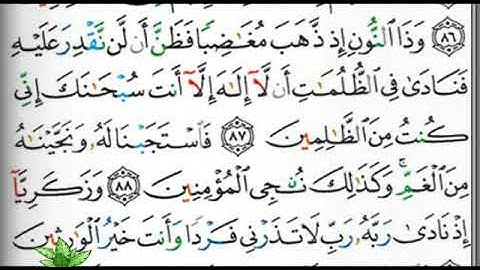 ٨٦ وَذَا ٱلنُّونِ إِذ ذَّهَبَ مُغَٰضِبًا فَظَنَّ أَن لَّن نَّقْدِرَ عَلَيْهِ
فَنَادَىٰ فِى ٱلظُّلُمَٰتِ أَن لَّآ إِلَٰهَ إِلَّآ أَنتَ سُبْحَٰنَكَ إِنِّى
كُنتُ مِنَ ٱلظَّٰلِمِينَ ٨٧ فَٱسْتَجَبْنَا لَهُۥ وَنَجَّيْنَٰهُ
مِنَ ٱلْغَمِّ ۚ وَكَذَٰلِكَ نُۨجِى ٱلْمُؤْمِنِينَ ٨٨ وَزَكَرِيَّآ
إِذْ نَادَىٰ رَبَّهُۥ رَبِّ لَا تَذَرْنِى فَرْدًا وَأَنتَ خَيْرُ ٱلْوَٰرِثِينَ